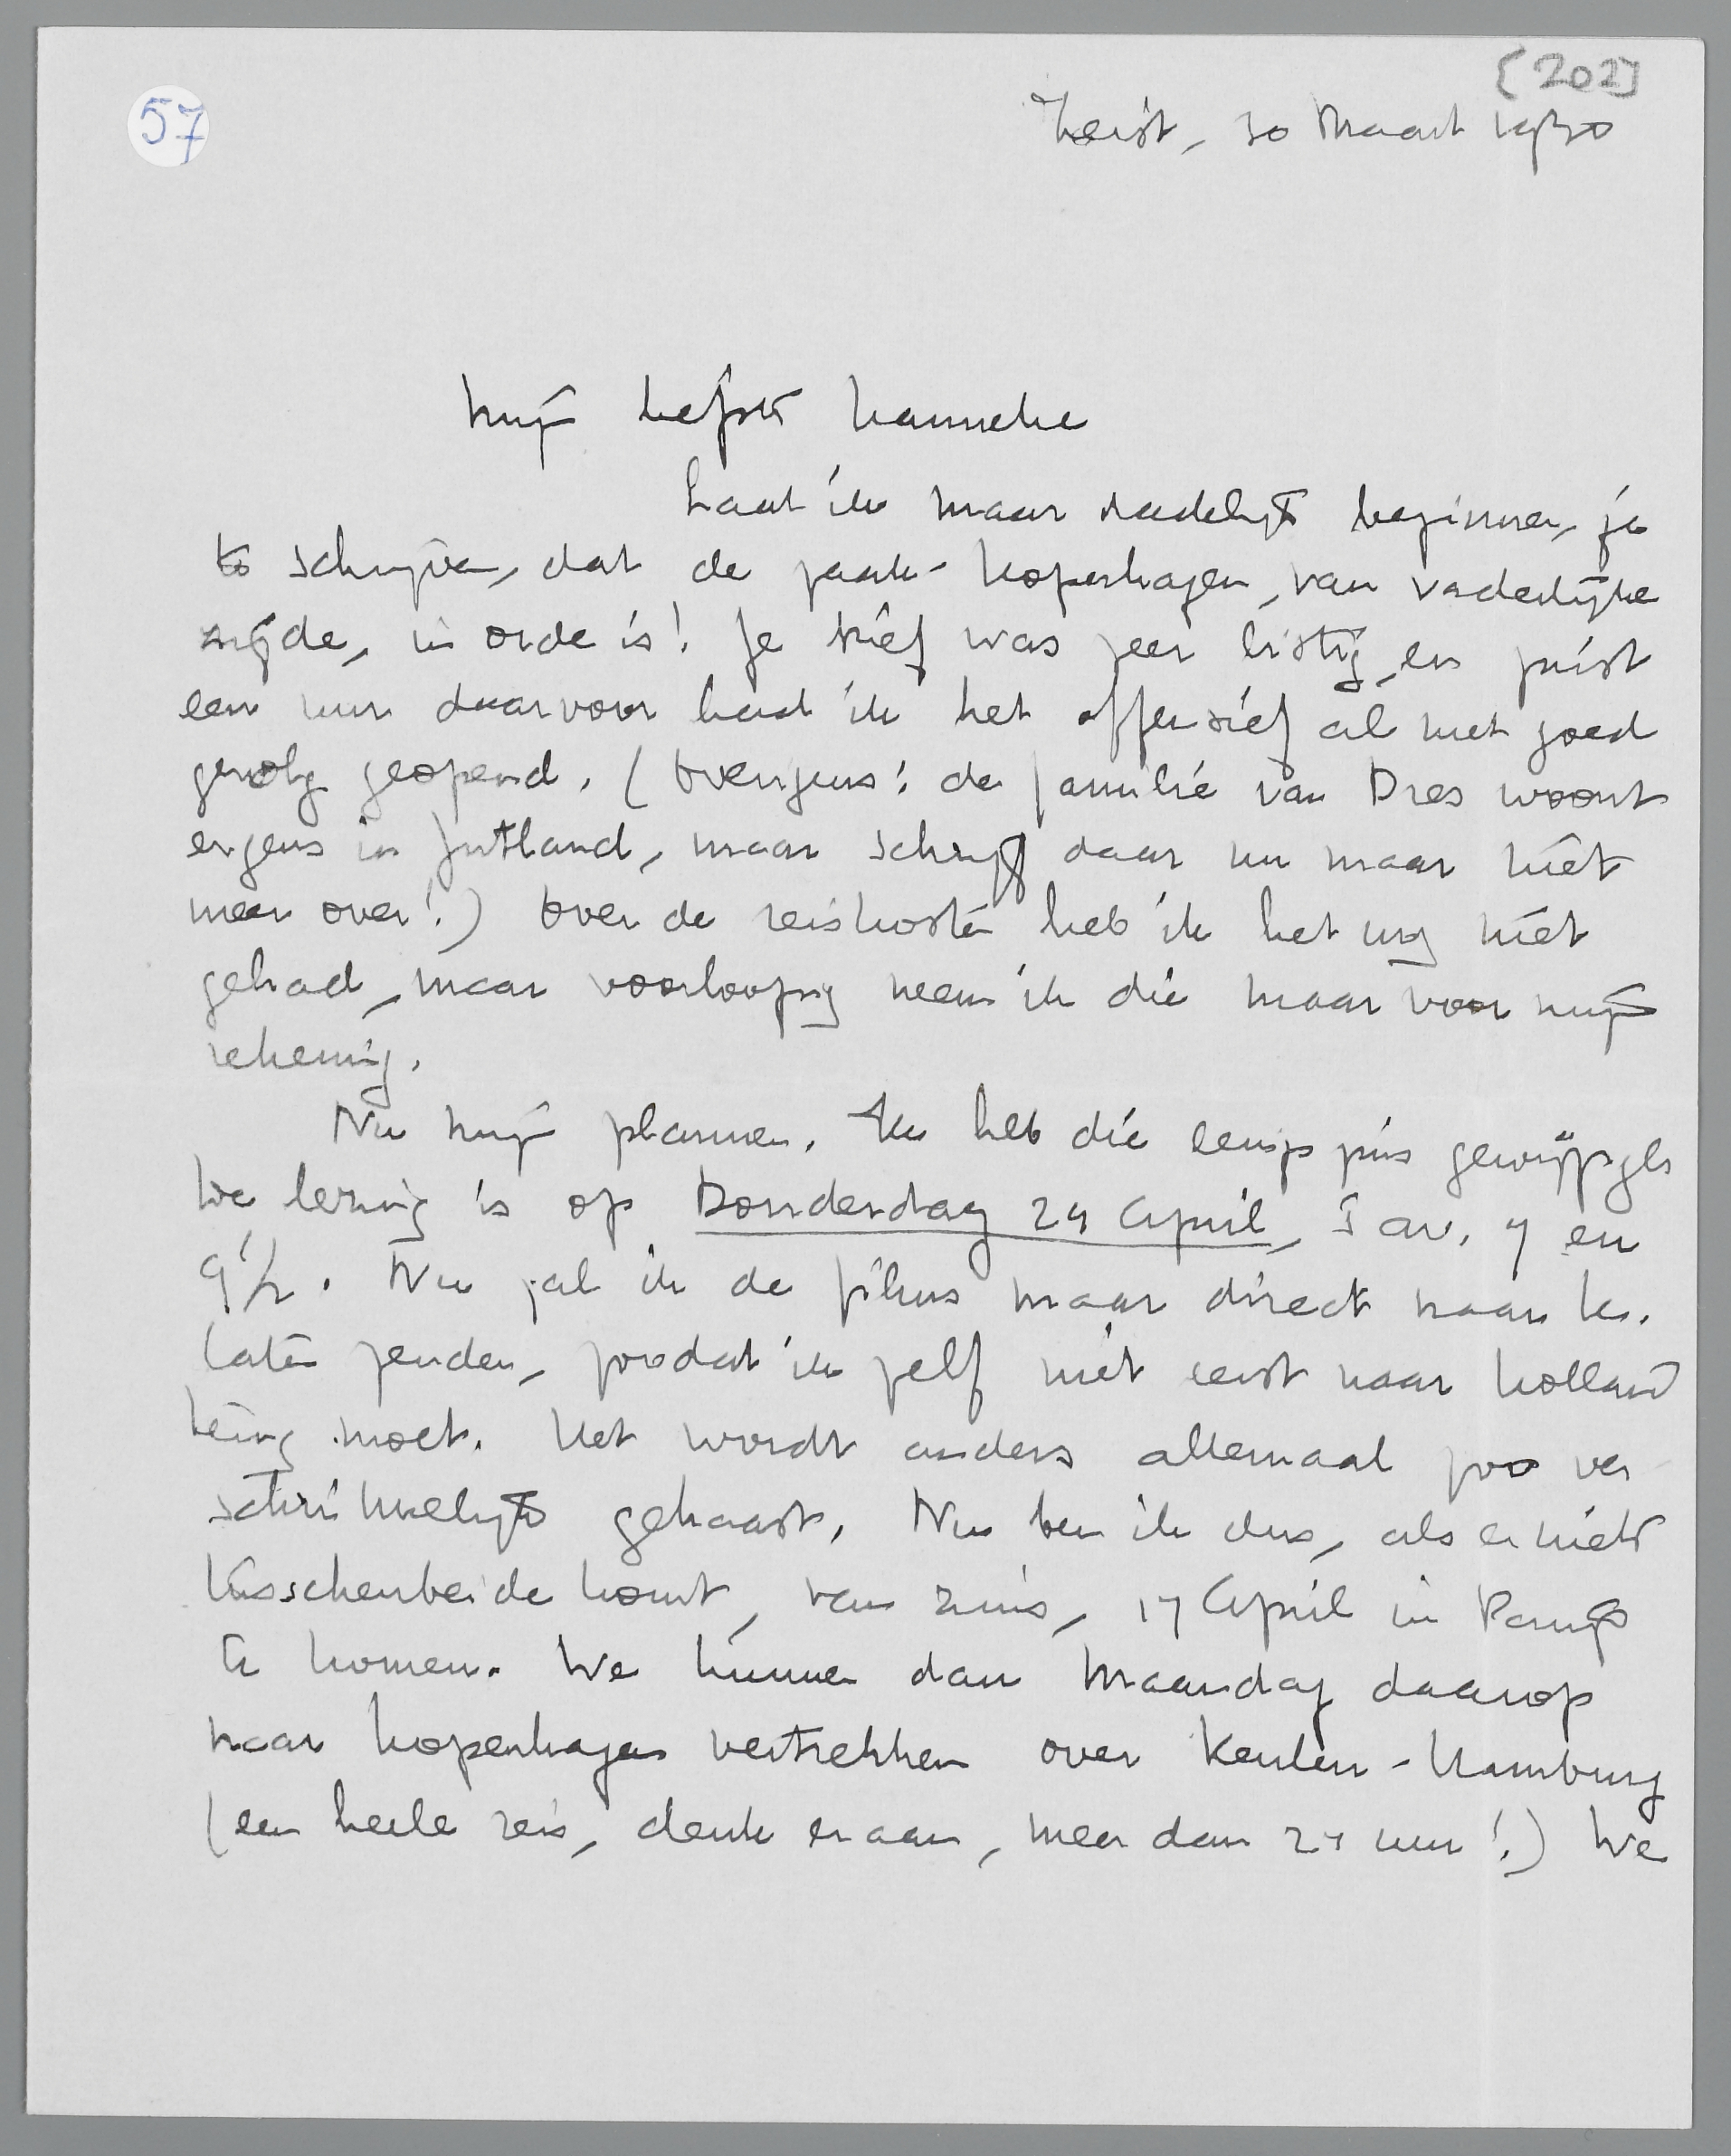 [202]
57
Zeist, 30 Maart 1930
Mijn liefste Hanneke
Laat ik maar dadelijk beginnen, je
te schrijven, dat de zaak-Kopenhagen, van vaderlijke
zijde, in orde is! Je brief was zeer listig, en juist
een uur daarvoor had ik het offensief al met goed
gevolg geopend. (Overigens: de familie van Dres woont
ergens in Jutland, maar schrijf daar nu maar niet
meer over!) Over de reiskosten heb ik het nog niet
gehad, maar voorloopig neem ik die maar voor mijn
rekening.
Nu mijn plannen. Ik heb die eenigszins gewijzigd.
De lezing is op Donderdag 24 April, 's av. 7 en
9½. Nu zal ik de films maar direct naar K.
laten zenden, zoodat ik zelf niet eerst naar Holland
terug moet. Het wordt anders allemaal zoo ver
schrikkelijk gehaast. Nu ben ik dus, als er niets
tusschenbeide komt, van zins, 17 April in Parijs
te komen. We kunnen dan Maandag daarop
naar Kopenhagen vertrekken over Keulen-Hamburg
(een heele reis, denk eraan, meer dan 24 uur!) We